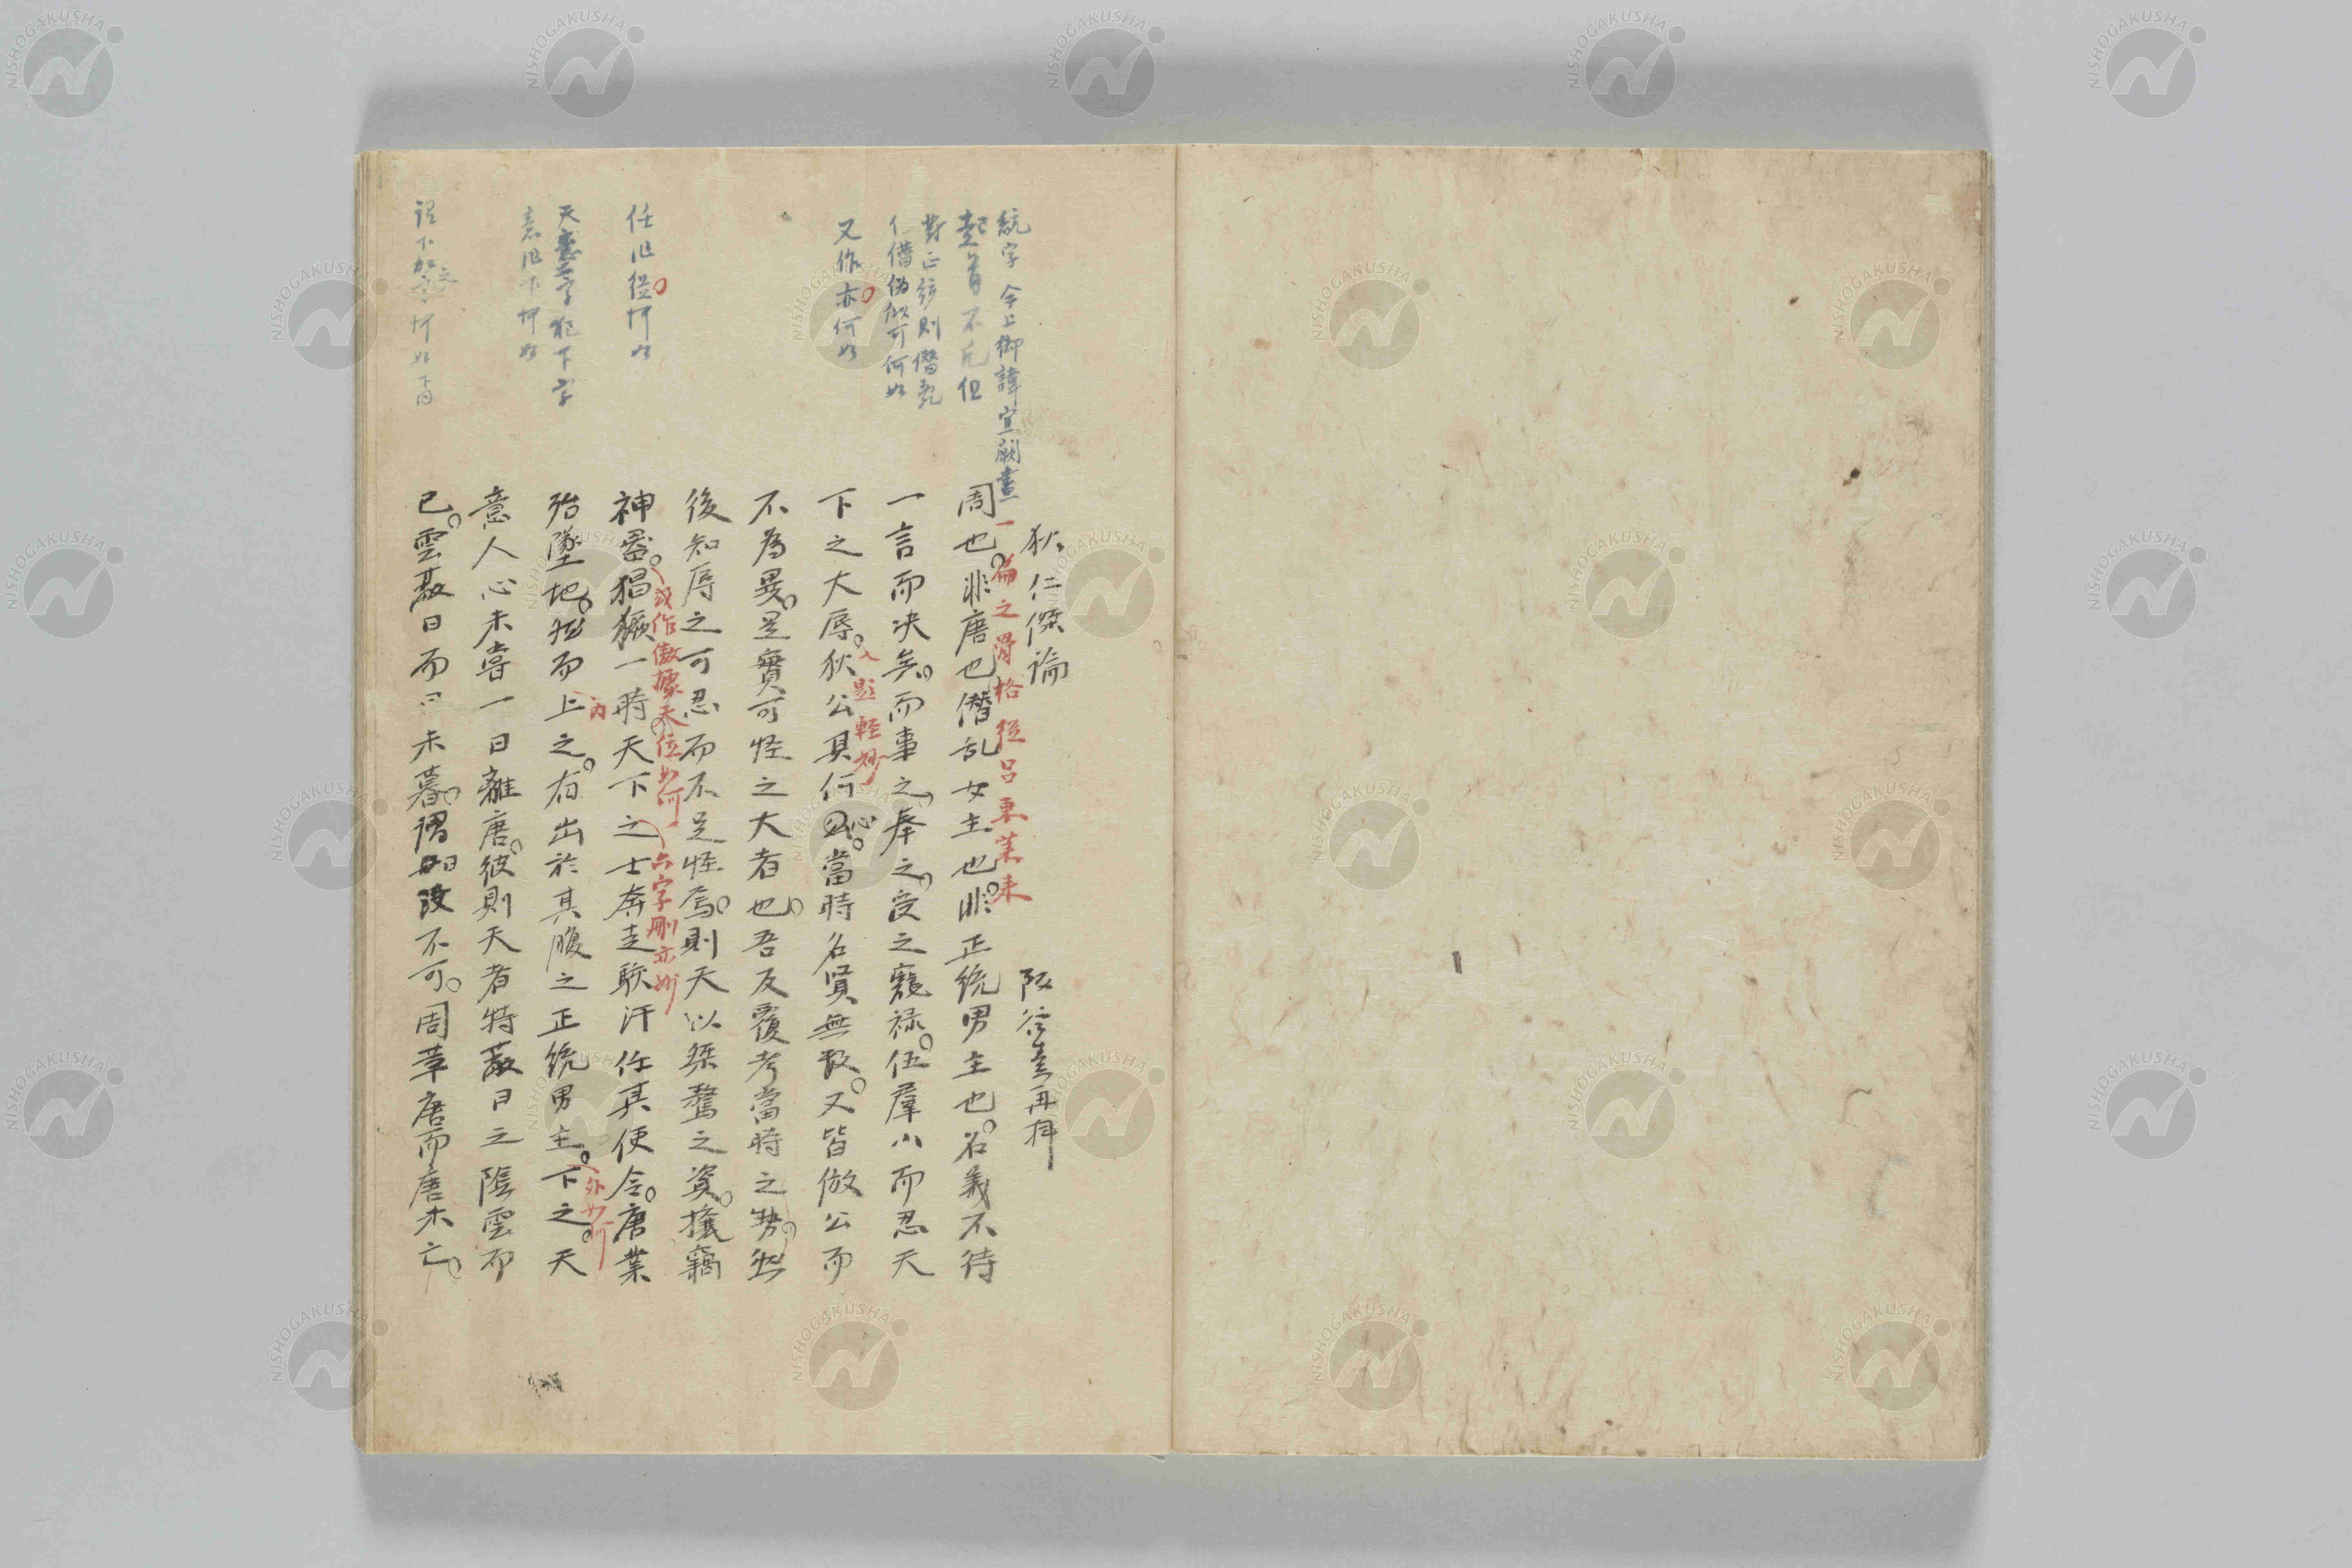 狄仁傑論
阪谷素再拝
周也。非唐也。僭乱女主也。非正統男主也。名義不待
一言而决矣。而事之奉之。受之寵禄。伍羣小而忍天
下之大辱。狄公具何心。當時名賢無數。又皆倣公而
不為異。是實可怪之大者也。吾反覆考當時之勢。然
後知辱之可忍而不足怪焉。則天以桀驁之資。攘竊
神器。猖獗一時。天下之士奔走駭汗任其使令。唐業
殆墜地。然而上之。有出於其腹之正統男主。下之。天
意人心未嘗一日離唐。彼則天者特蔽日之陰雲而
已。雲蔽日而日未暮。謂日沒不可。周革唐而唐未亡。
統字今上御諱宜闕畫
起首不凡但
對正統則僭乱
仁僭偽似可何如
又作亦何如
任作從何如
天意字犯下字
意作下何如
謂下加之字何如下同
一篇之骨格從呂東萊来
入題輕妙
或作傲據天位如何
六字刪亦妙
内
外如何
NISHOGAKUSHA